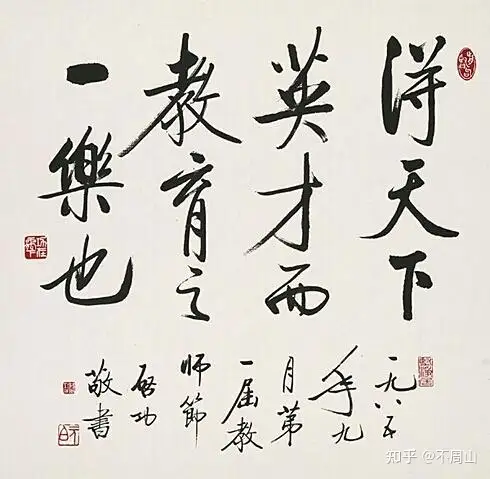 得天下
英才而
教育之
一樂也
一九八五
年九
月第
一届教
師節
啓功
敬書
知乎 @不周山